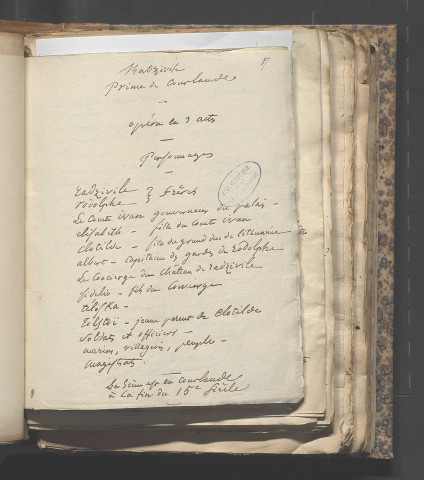 87
Radzivile
Prince de Courlande
opéra en 3 acts
Personnages
radzivile } frères
rodolphe }
Le comte ivan gouverneur du palais -
elisabeth - fille du comte ivan
Clotilde - fille du grand duc de lithuanie
albert - capitaine des gardes de rodolphe
Le Concierge du château de radzivile
fidelio - fils du Concierge
tolstoï - jeune parent de Clotilde
soldats et officiers -
marins, villageois, peuple -
magistrats.
La scène est en courlande
à la fin du 15e siècle